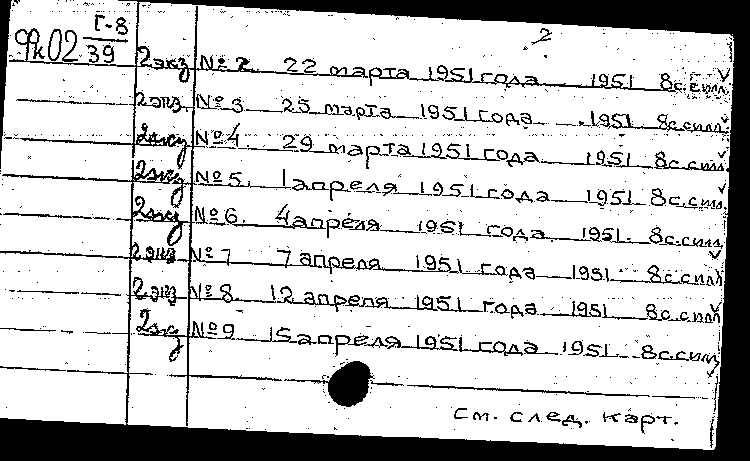 2
ФК02 Г-8/39
2 экз №2. 22 марта 1951 года 1951 8с. с илл.
2 экз. №3 25 марта 1951 года 1951 8с. с илл.
2 экз №4. 29 марта 1951 года 1951 8с. с илл.
2 экз №5. 1 апреля 1951 года 1951 8с. с илл.
2 экз №6. 4 апреля 1951 года 1951. 8с. с илл.
2 экз №7 7 апреля 1951 года 1951 8с. с илл
2 экз №8. 12 апреля 1951 года 1951 8с. с илл
2 экз №9 15 апреля 1951 года 1951 8с. с илл
См. след. карт.